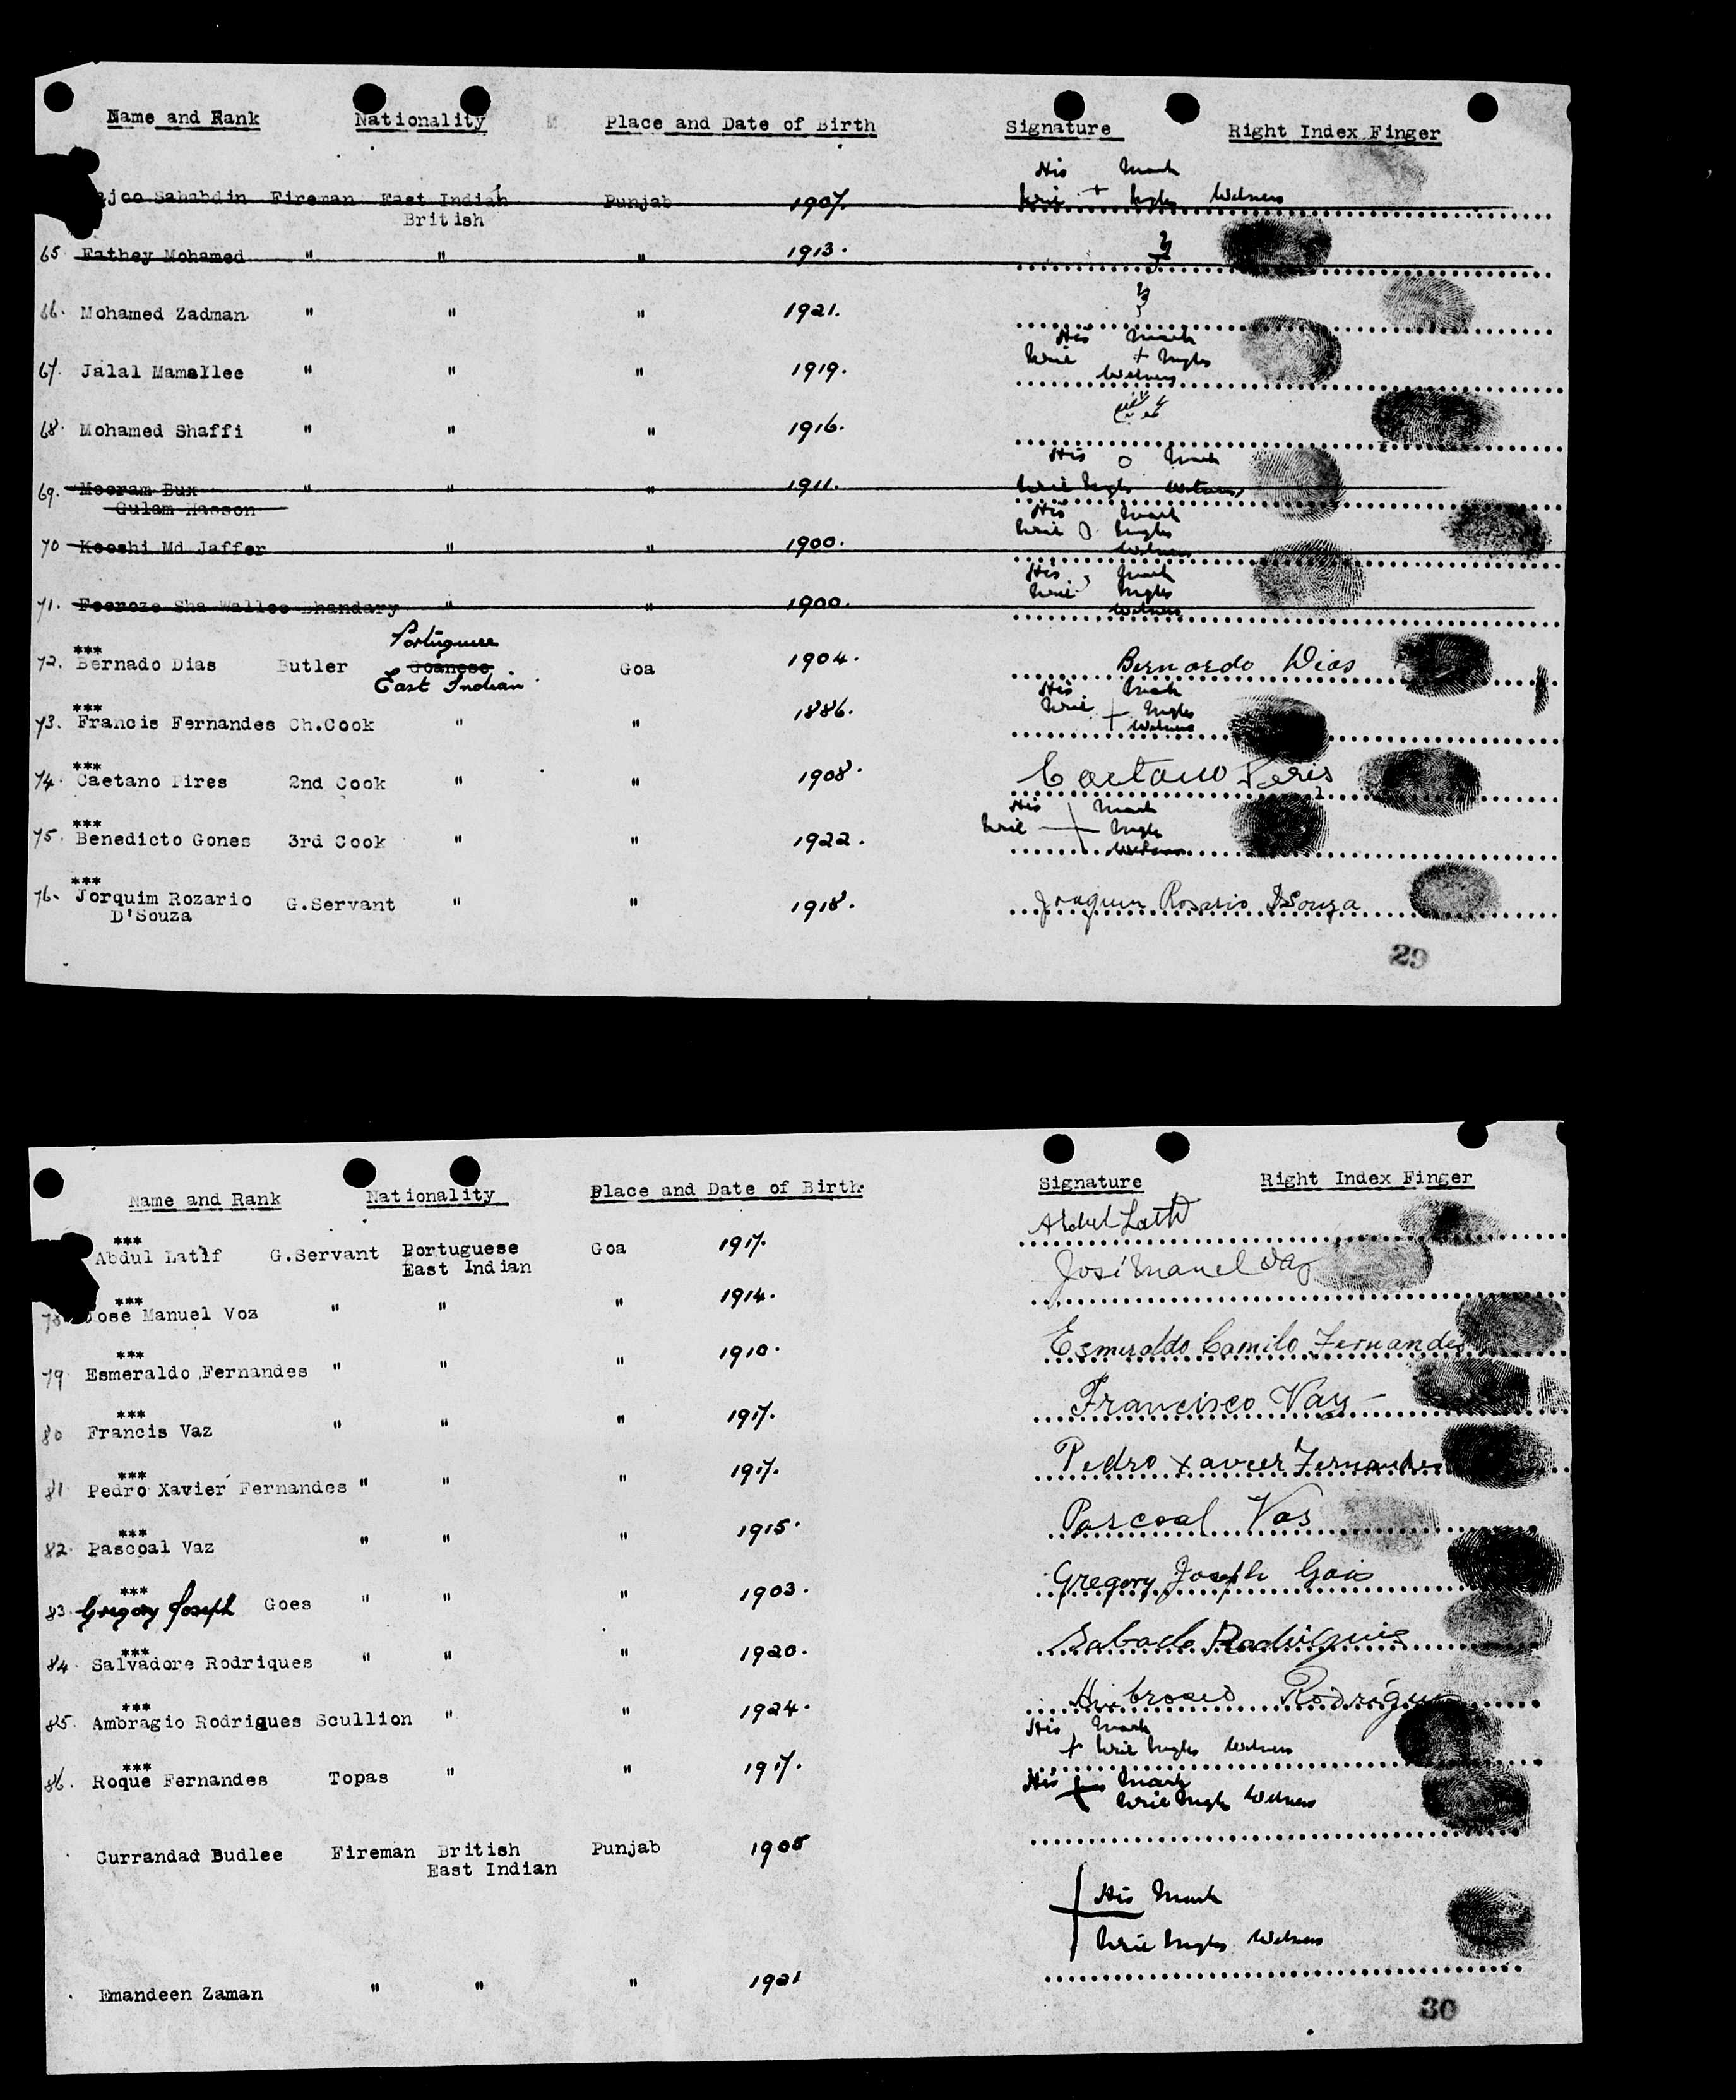 Name and Rank Nationality Place and Date of Birth Signature Right Index Finger
His Mark
joo Sahabdin Fireman East Indian Punjab 1907. + Witness
British
65. Fathey Mohamed " " " 1913.
66. Mohamed Zadman " " " 1921.
His Mark
67. Jalal Mamallee " " " 1919. +
Witness
68. Mohamed Shaffi " " " 1916.
His O Mark
69. Meeram Bux " " " 1911. Witness
Gulam Hasson His Mark
70 Kooshi Md Jaffer " " 1900.
Witness
His Mark
71. Feeroze Sha Wallee Bhandary " " 1900. Witness
Portuguese
72. *** Bernado Dias Butler Goanese Goa 1904. Bernardo Dias
East Indian
His Mark
73. *** Francis Fernandes Ch.Cook " " 1886. + Witness
74. *** Caetano Pires 2nd Cook " " 1908. Caetano Peris
His Mark
75. *** Benedicto Gones 3rd Cook " " 1922. + Witness
76. *** Jorquim Rozario G.Servant " " 1918. Joaquim Rosario DSouza
D'Souza
29
Name and Rank Nationality Place and Date of Birth Signature Right Index Finger
*** Abdul Latif G.Servant Portuguese Goa 1917. Abdul Latif
East Indian
78 *** Jose Manuel Voz " " " 1914. José Manuel Vaz
79 *** Esmeraldo Fernandes " " " 1910. Esmeraldo Camilo Fernandes
80 *** Francis Vaz " " " 1917. Francisco Vaz
81 *** Pedro Xavier Fernandes " " " 1917. Pedro Xavier Fernandes
82. *** Pascoal Vaz " " " 1915. Pascoal Vas
83. *** Gregory Joseph Goes " " " 1903. Gregory Joseph Gois
84. *** Salvadore Rodriques " " " 1920.
85. *** Ambragio Rodriques Scullion " " 1924.
His Mark
86. *** Roque Fernandes Topas " " 1917. + Witness
His + Mark
Witness
Currandad Budlee Fireman British Punjab 1905
East Indian
+ His Mark
Witness
Emandeen Zaman " " " 1921
30